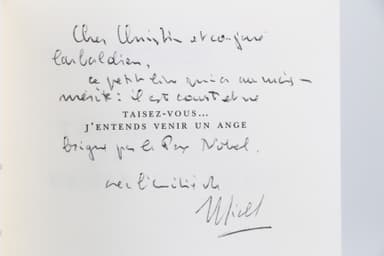 Cher Christian et conjuré
Garibaldien,
ce petit livre qui a un mais—
mérite : il est court et ne
TAISEZ-VOUS...
J'ENTENDS VENIR UN ANGE
brigue pas le Prix Nobel.
avec l'amitié de
Michel